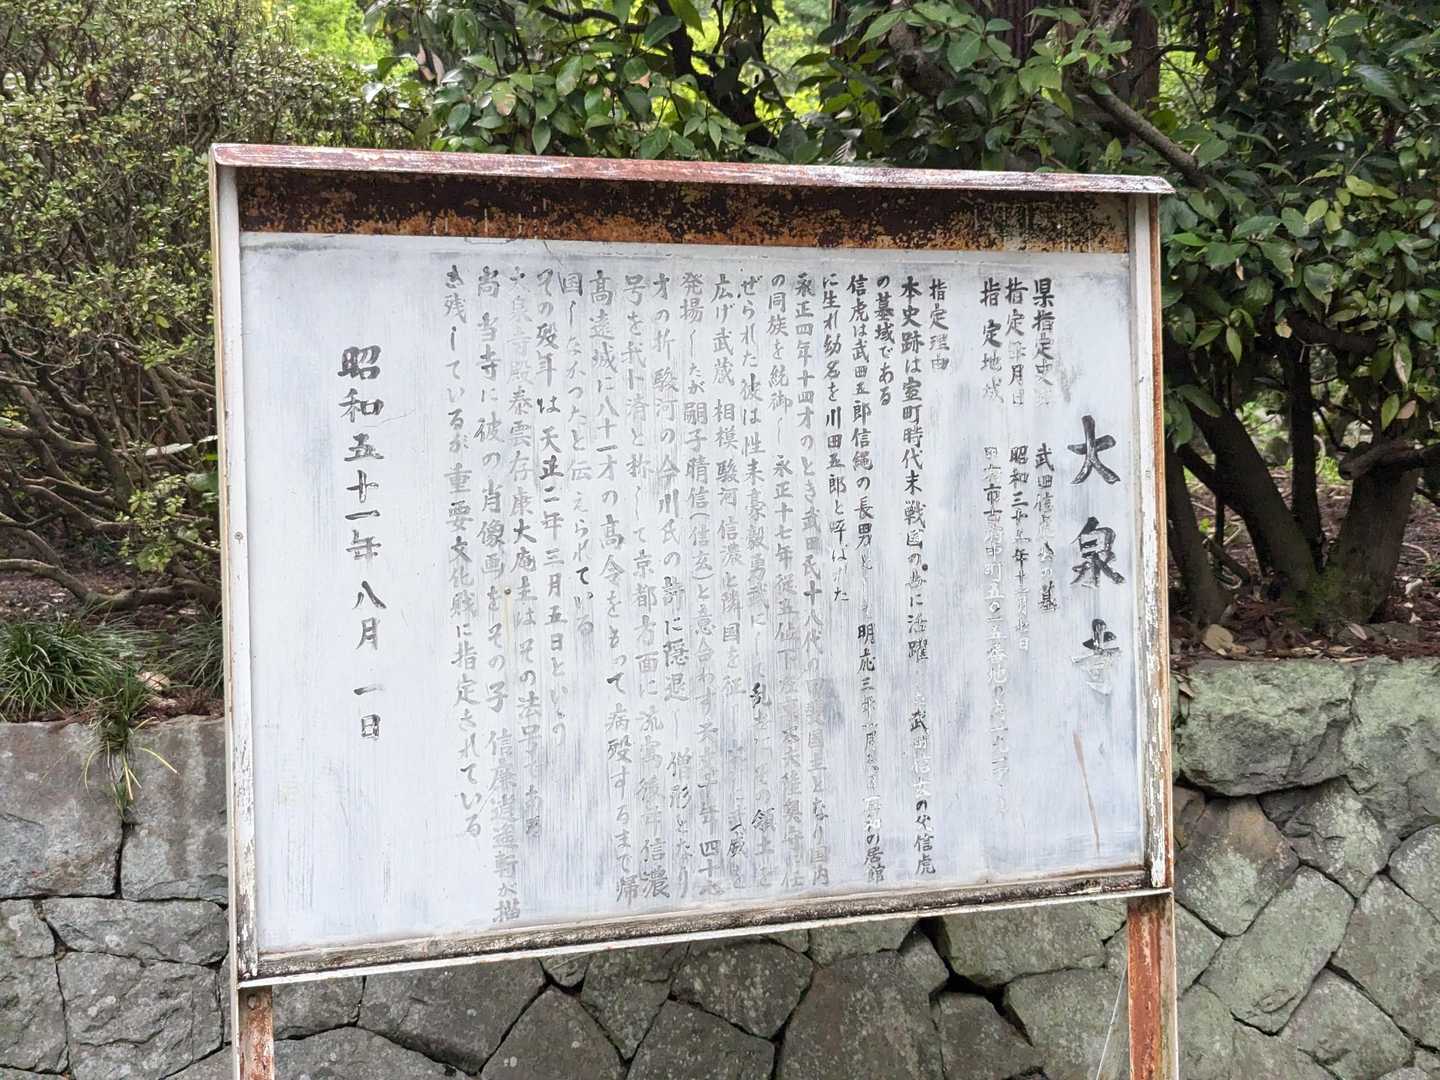 大泉寺
県指定史跡 武田信虎公の墓
指定年月日 昭和三十五年十一月七日
指定地域 甲府市古府中町五〇一五番地の
指定理由
本史跡は室町時代末戦国の世に活躍した武田信玄の父信虎
の墓域である
信虎は武田五郎信縄の長男として明応三年 の居館
に生れ幼名を川田五郎と呼ばれた
永正四年十四才のとき武田氏十八代の甲斐国主となり国内
の同族を統御し永正十七年従五位下左京大夫陸奥守に任
ぜられた彼は性来豪毅勇武にして乱世にその領土を
広げ武蔵 相模 駿河 信濃と隣国を征し 武威を
発揚したが嗣子晴信(信玄)と意合わず天文十年 四十七
才の折 駿河の今川氏の許に隠退し 僧形となり
号を我卜済と称して京都方面に流寓後年信濃
高遠城に八十一才の高令をもって病歿するまで帰
国しなかったと伝えられている
その歿年は天正二年三月五日という
大泉寺殿泰雲存康大庵主はその法号で
尚 当寺に彼の肖像画をその子 信廉逍遥軒が描
き残しているが重要文化財に指定されている
昭和五十一年八月一日